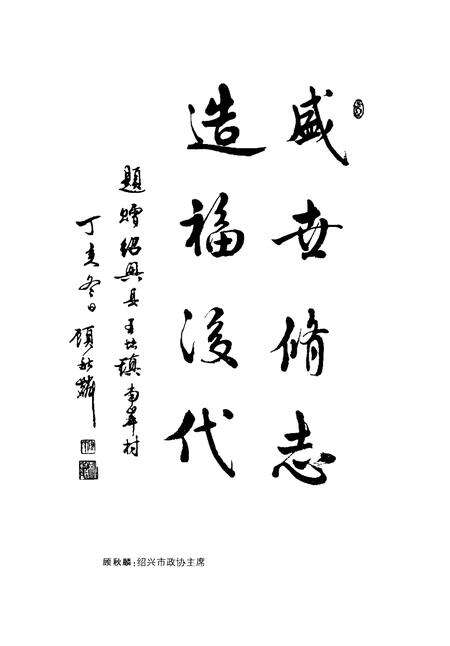 盛世脩志
造福後代
題贈紹興县王坛鎮南岸村
丁亥冬日 顾秋麟
顾秋麟：绍兴市政协主席